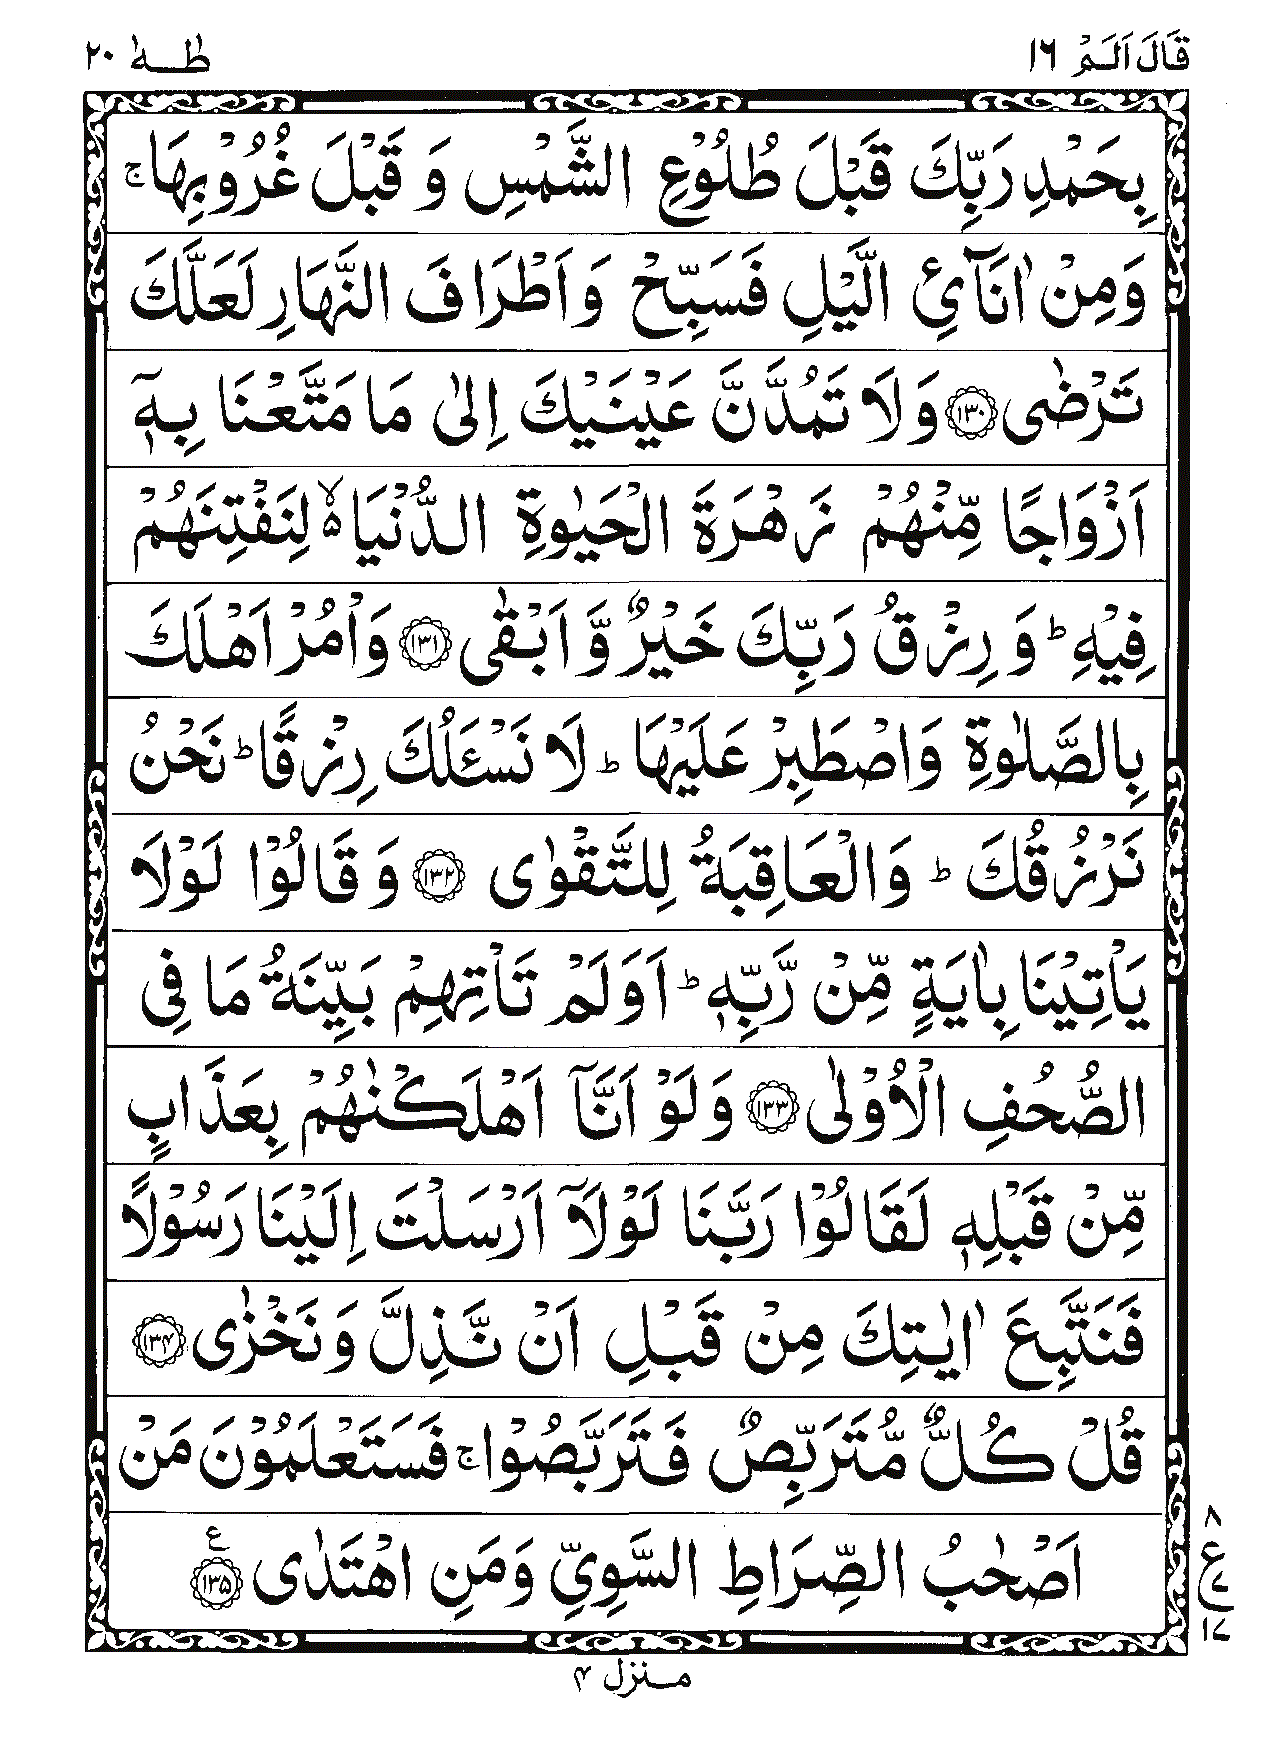 قَالَ اَلَمۡ ١٦ طٰهٰ ٢٠
بِحَمۡدِ رَبِّكَ قَبۡلَ طُلُوۡعِ الشَّمۡسِ وَ قَبۡلَ غُرُوۡبِهَا ۚ
وَمِنۡ اٰنَآیِٔ الَّيۡلِ فَسَبِّحۡ وَاَطۡرَافَ النَّهَارِ لَعَلَّكَ
تَرۡضٰى ﴿۱۳۰﴾ وَلَا تَمُدَّنَّ عَيۡنَيۡكَ اِلٰى مَا مَتَّعۡنَا بِهٖۤ
اَزۡوَاجًا مِّنۡهُمۡ زَهۡرَةَ الۡحَيٰوةِ الدُّنۡيَا ۙ۬ لِنَفۡتِنَهُمۡ
فِيۡهِ ؕ وَ رِزۡقُ رَبِّكَ خَيۡرٌ وَّ اَبۡقٰى ﴿۱۳۱﴾ وَاۡمُرۡ اَهۡلَكَ
بِالصَّلٰوةِ وَاصۡطَبِرۡ عَلَيۡهَا ؕ لَا نَسۡـَٔلُكَ رِزۡقًا ؕ نَحۡنُ
نَرۡزُقُكَ ؕ وَالۡعَاقِبَةُ لِلتَّقۡوٰى ﴿۱۳۲﴾ وَ قَالُوۡا لَوۡلَا
يَاۡتِيۡنَا بِاٰيَةٍ مِّنۡ رَّبِّهٖ ؕ اَوَلَمۡ تَاۡتِهِمۡ بَيِّنَةُ مَا فِى
الصُّحُفِ الۡاُوۡلٰى ﴿۱۳۳﴾ وَلَوۡ اَنَّاۤ اَهۡلَكۡنٰهُمۡ بِعَذَابٍ
مِّنۡ قَبۡلِهٖ لَقَالُوۡا رَبَّنَا لَوۡلَاۤ اَرۡسَلۡتَ اِلَيۡنَا رَسُوۡلًا
فَنَتَّبِعَ اٰيٰتِكَ مِنۡ قَبۡلِ اَنۡ نَّذِلَّ وَ نَخۡزٰى ﴿۱۳۴﴾
قُلۡ كُلٌّ مُّتَرَبِّصٌ فَتَرَبَّصُوۡا ۚ فَسَتَعۡلَمُوۡنَ مَنۡ
اَصۡحٰبُ الصِّرَاطِ السَّوِىِّ وَمَنِ اهۡتَدٰى ﴿۱۳۵﴾ ع
٨
ع
١٧
منزل ۴